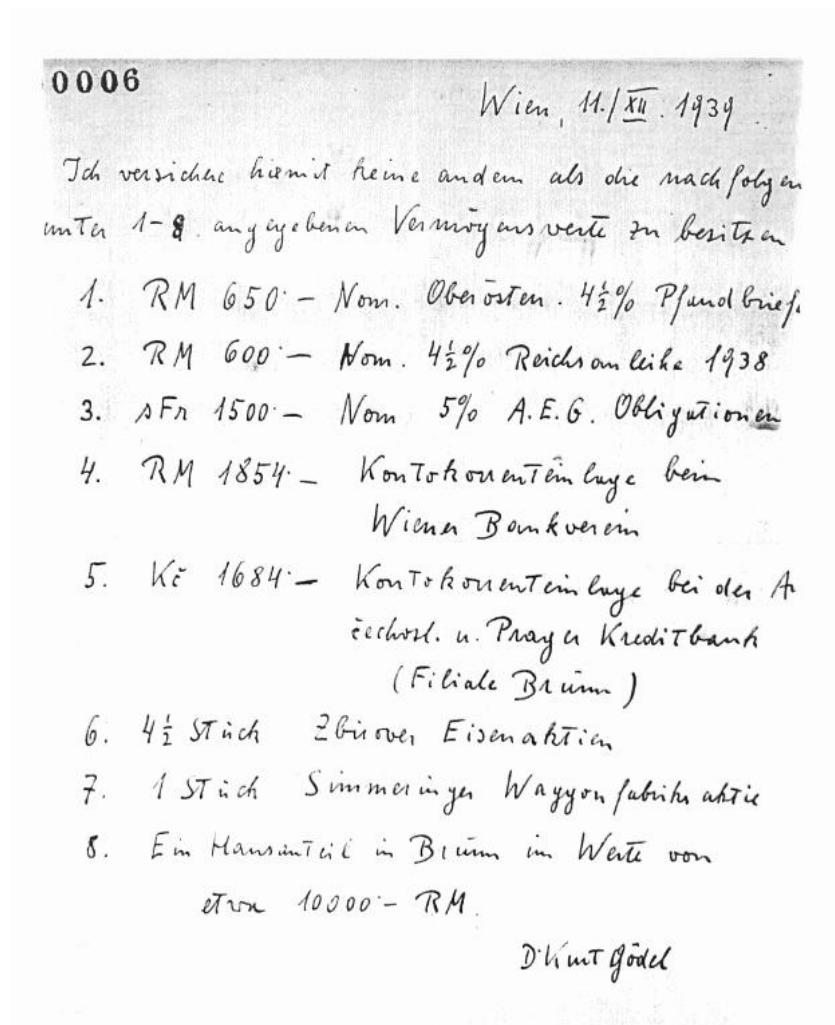 0006
Wien, 11./XII. 1939.
Ich versichere hiemit keine andern als die nachfolgen
unter 1-8. angegebenen Vermögenswerte zu besitzen
1. RM 650·— Nom. Oberösterr. 4½% Pfandbrief.
2. RM 600·— Nom. 4½% Reichsanleihe 1938
3. sFr 1500·— Nom 5% A.E.G. Obligationen
4. RM 1854·— Kontokorrenteinlage beim
Wiener Bankverein
5. Kč 1684·— Kontokorrenteinlage bei der A
čechosl. u. Prager Kreditbank
(Filiale Brünn)
6. 4½ Stück Zbirover Eisenaktien
7. 1 Stück Simmeringer Waggonfabriksaktie
8. Ein Hausanteil in Brünn im Werte von
etwa 10000·— RM.
Dr Kurt Gödel